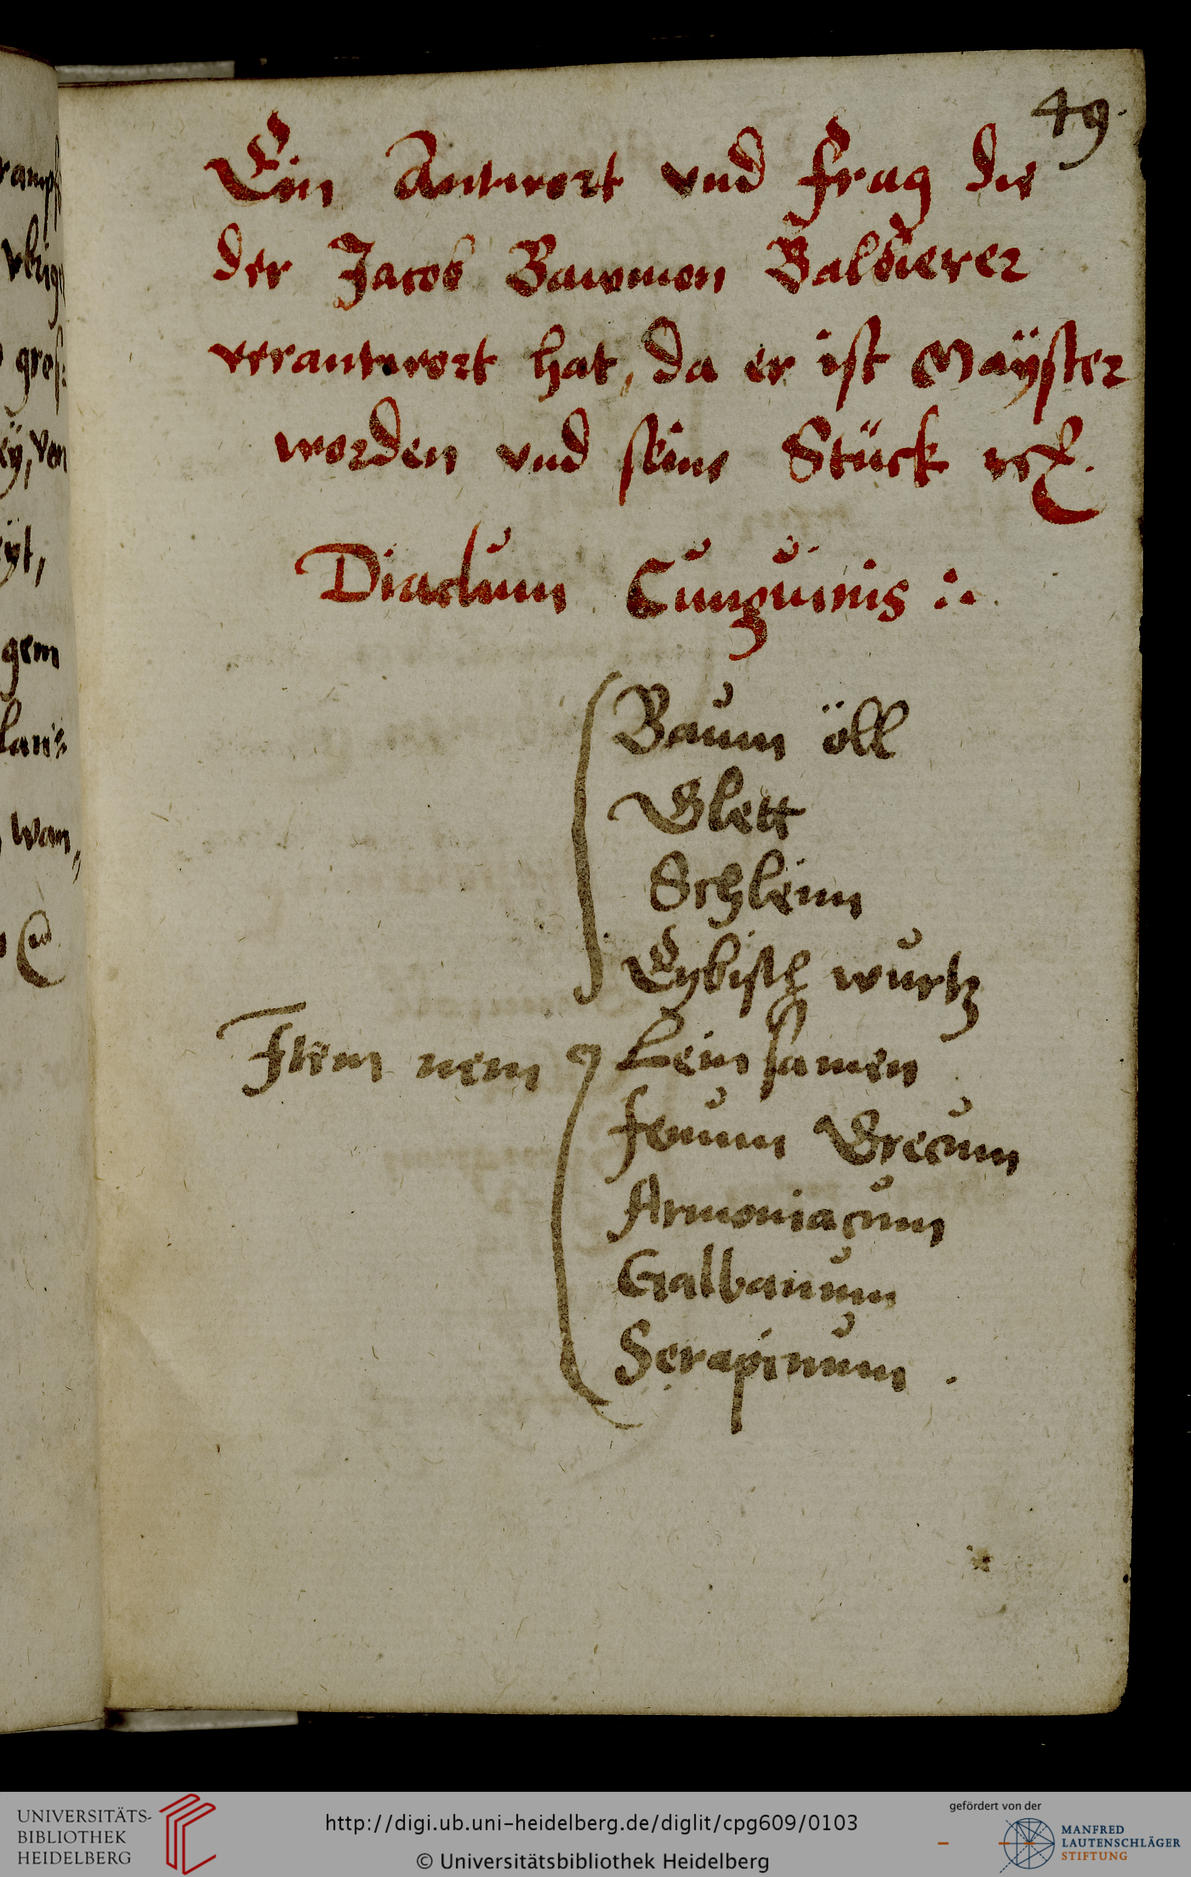 49.
Ein Antwort vnd frag die
der Jacob Bawmen Balbierer
verantwort hat, da er ist Maÿster
worden vnd seine Stück rc.
Diaclum Cunguinis
Baum öll
Glett
Schleim
Eybisch wurtz
Item nem Lein samen
fenum Grecum
Armoniacum
Galbanum
Serapinum .
UNIVERSITÄTS-
BIBLIOTHEK
HEIDELBERG
http://digi.ub.uni-heidelberg.de/diglit/cpg609/0103
© Universitätsbibliothek Heidelberg
gefördert von der
MANFRED
LAUTENSCHLÄGER
STIFTUNG